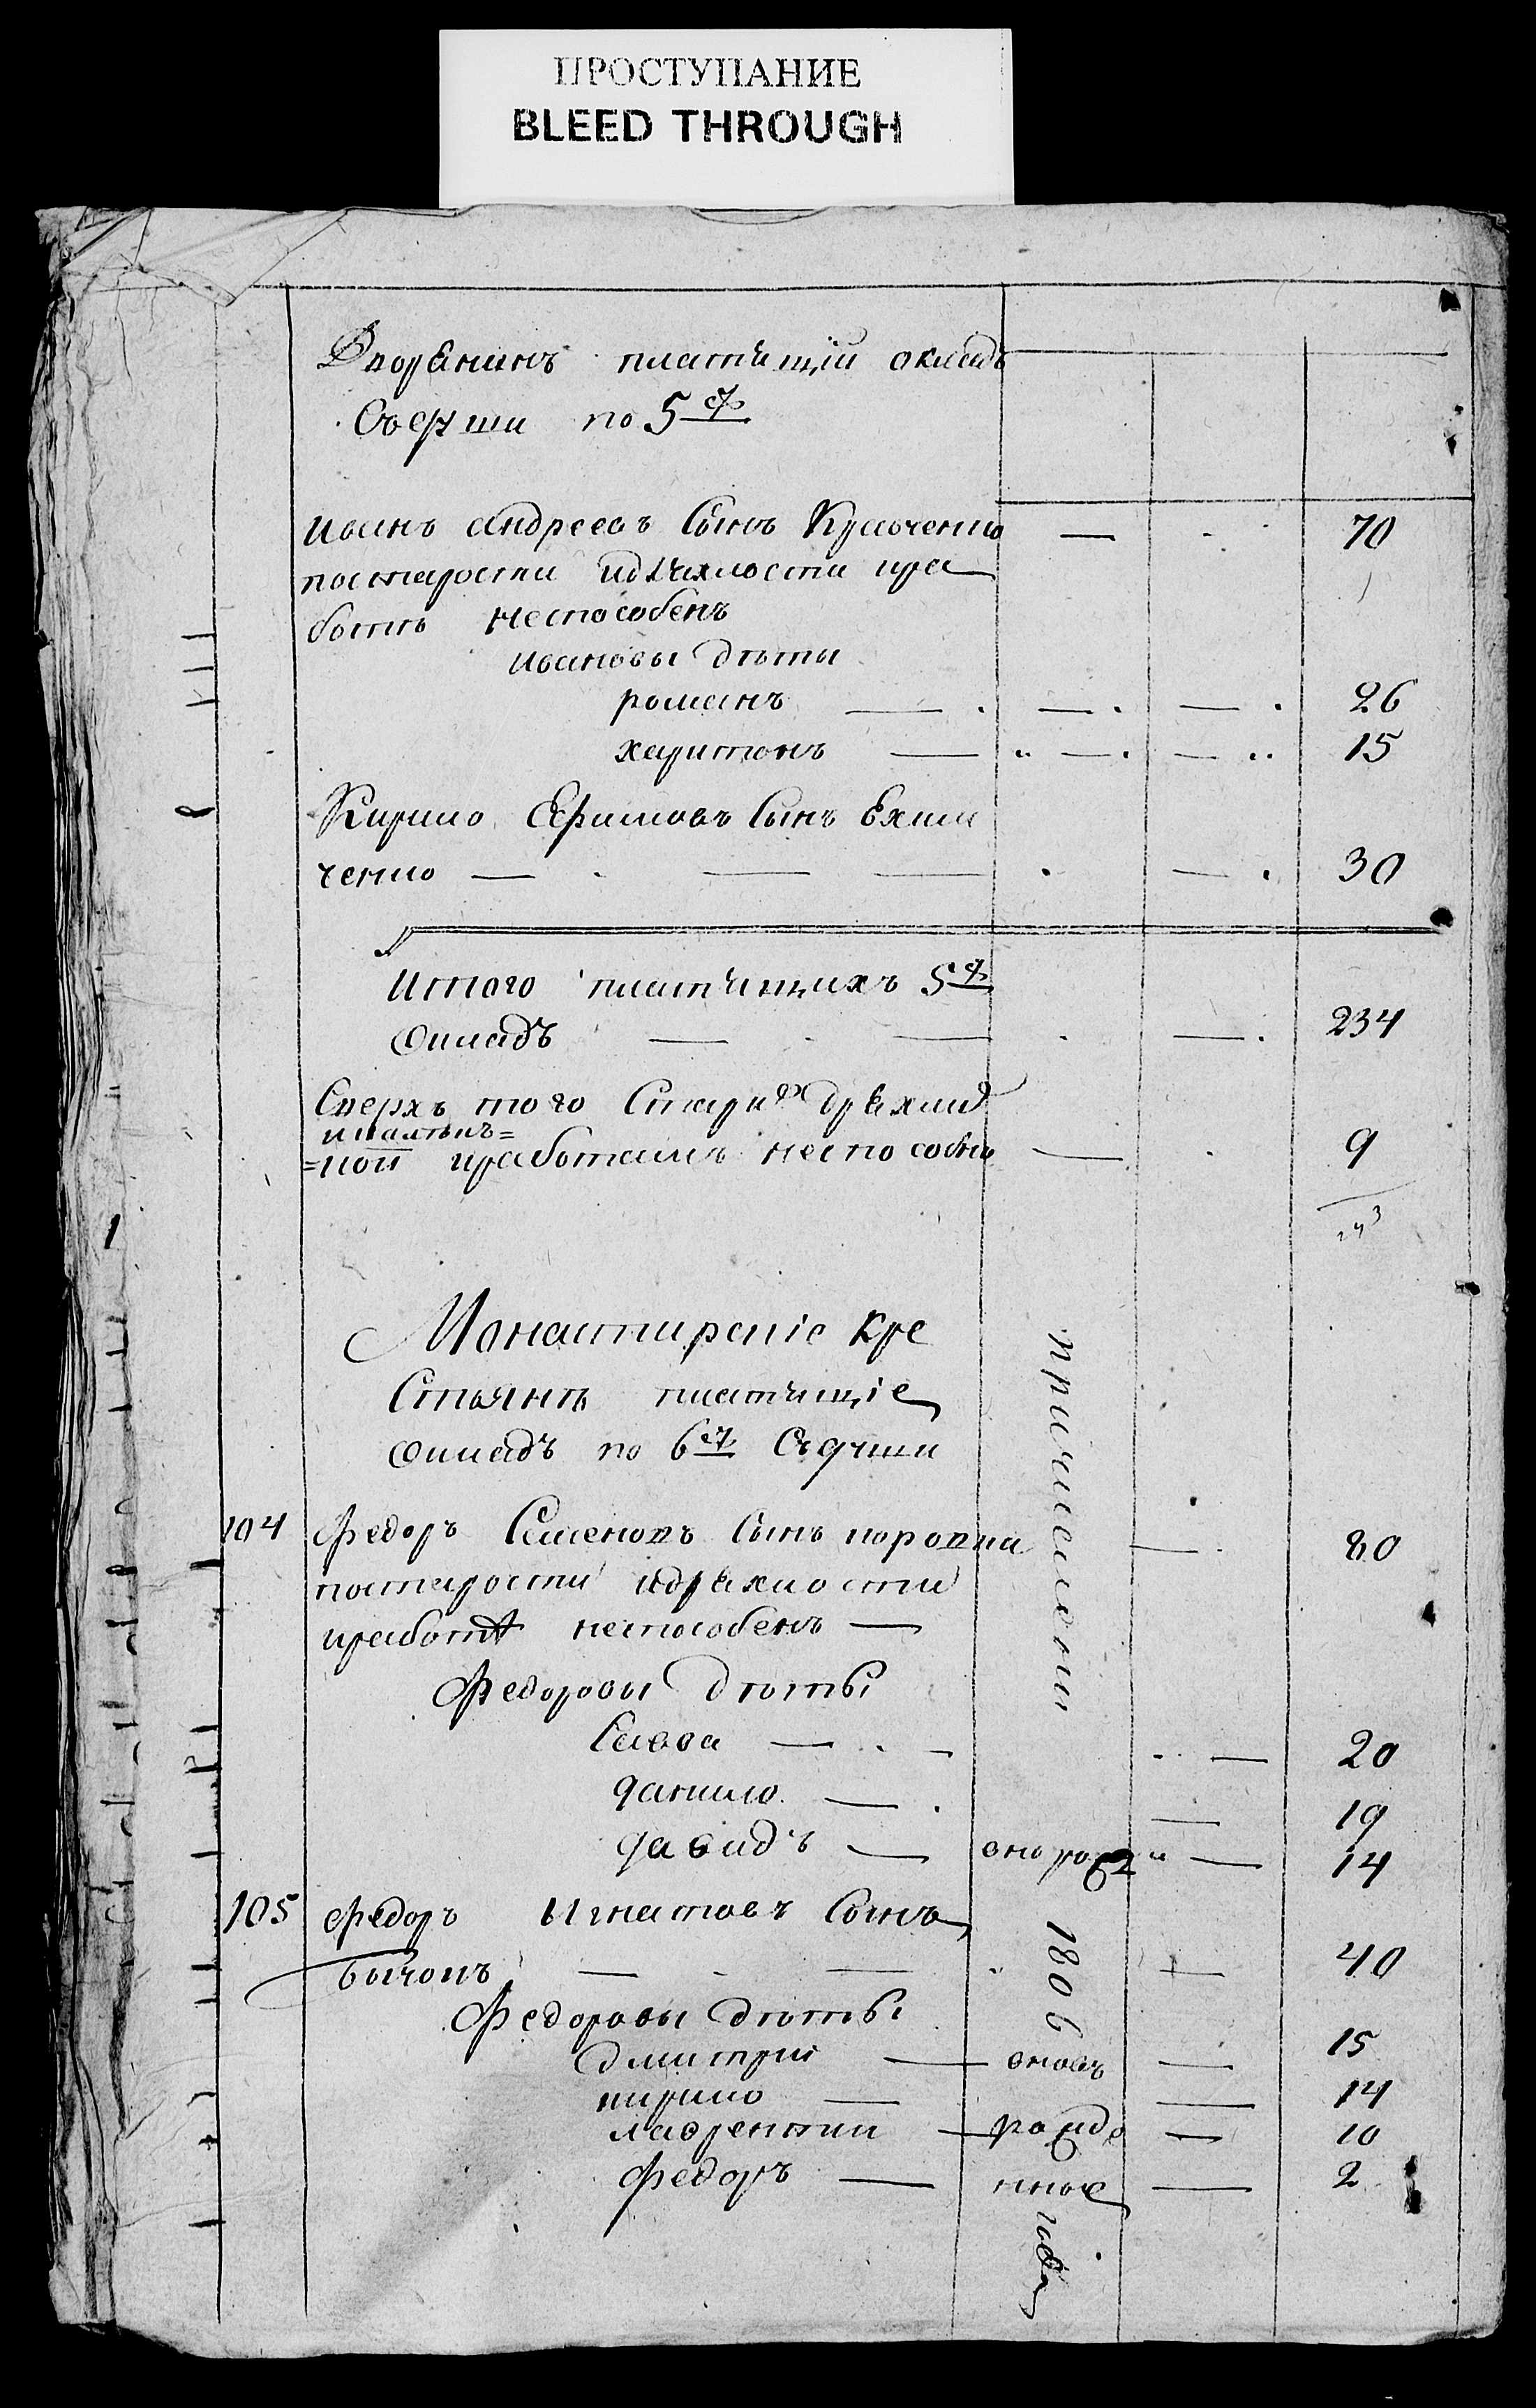 ПРОСТУПАНИЕ
BLEED THROUGH
Дворянинъ платящїи окладъ
Съ души по 5 р
Иванъ андреевъ Сынъ 70
постарости идряхлости кра
ботѣ неспособенъ
ивановы дѣти
романъ 26
харитонъ 15
Кирило Ефимовъ Сынъ Ехим
ченко 30
Итого платящихъ 5 р
окладъ 234
Сверхъ того Стари дряхлид
ималѣтъ=
=кой кработамъ неспособнъ 9
243
Монастирскіе Кре
Стьянѣ платящіе
окладъ по 6 р Съ души
104 федоръ Семеновъ Сынъ коровка 80
постарости идряхлости
кработѣ неспособенъ
Федоровы дѣты
Савва 20
данило 19
давидъ 14
105 федоръ Игнатовъ Сынъ
бычокъ 40
Федоровы дѣты
дмитрий вновъ 15
кирило 14
лаврентий рожде 10
федоръ нные 2
причислени
1806
года